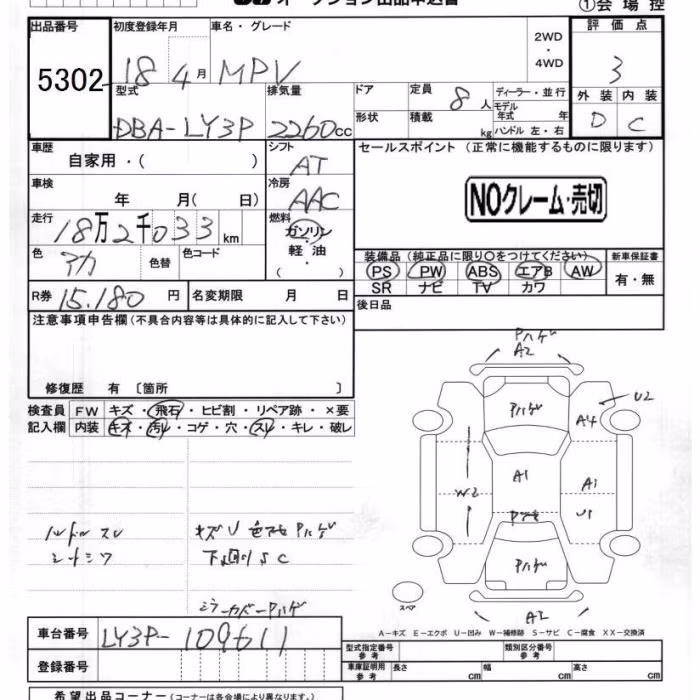 オークション出品申込書
①会場控
出品番号
5302
初度登録年月
18 4月
車名・グレード
MPV
2WD
・
4WD
評価点
3
型式
DBA-LY3P
排気量
2260cc
ドア
形状
定員
8人
積載
kg
ディーラー・並行
モデル
年式 年
ハンドル 左・右
外装 内装
D C
車歴
自家用・( )
シフト
AT
セールスポイント (正常に機能するものに限ります)
NOクレーム・売切
車検
年 月( 日)
冷房
AAC
走行
18万2千033km
燃料
ガソリン
軽・油
( )
色
アカ
色替
色コード
装備品 (純正品に限り○をつけてください)
新車保証書
PS PW ABS エアB AW
SR ナビ TV カワ
有・無
R券 15.180 円
名変期限 月 日
後日品
注意事項申告欄 (不具合内容等は具体的に記入して下さい)
修復歴 有 〔箇所 〕
検査員
記入欄
FW キズ・飛石・ヒビ割・リペア跡・×要
内装 キズ・汚レ・コゲ・穴・スレ・キレ・破レ
Pハゲ
A2
Pハゲ
U2
A4
A1
W2
A1
U1
Pハゲ
A2
スペア
ハンドルスレ
シートシワ
キズU 色ボケ Pハゲ
下回りSC
ミラーカバーPハゲ
A−キズ E−エクボ U−凹み W−補修跡 S−サビ C−腐食 XX−交換済
車台番号 LY3P-109611
登録番号
型式指定番号
参考
類別区分番号
参考
車庫証明用
参考
長さ cm
幅 cm
高さ cm
希望出品コーナー (コーナーは各会場により異なります。)